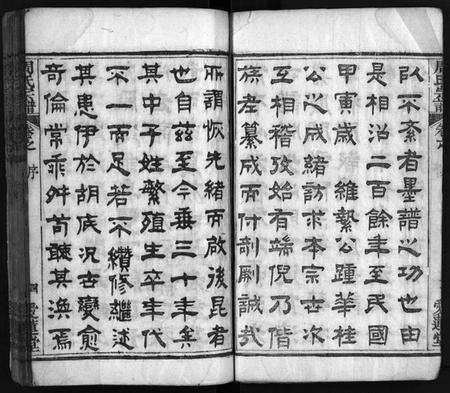 以不紊者墨譜之功也由
是相沿二百餘年至民國
甲寅歲 維縶公踵華桂
公之成緒訪求本宗世次
互相稽攷始有端倪乃偕
族耂纂成而付剞劂誠哉
所謂恢先緒而啟後昆者
也自茲至今垂三十年矣
其中子姓繁殖生卒年代
不一而足若不纘修繼述
其患伊於胡底況世變愈
奇倫常乖舛苟聽其渙焉
周氏宗譜 卷之 序 四 愛蓮堂